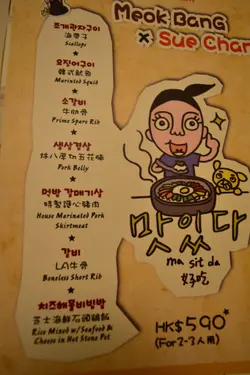 MEOK BANG
× SUE CHAR
조개관자구이
海帶子
Scallops
오징어구이
韓式魷魚
Marinated Squid
소갈비
牛肋骨
Prime Spare Rib
생삼겹살
特厚切五花腩
Pork Belly
먹방 갈매기살
特製護心豬肉
House Marinated Pork
Skirtmeat
갈비
LA牛骨
Boneless Short Rib
치즈해물비빔밥
芝士海鮮石頭鍋飯
Rice Mixed w/Seafood &
Cheese in Hot Stone Pot
맛있다
ma sit da
好吃
HK$590*
(For 2-3 人用)